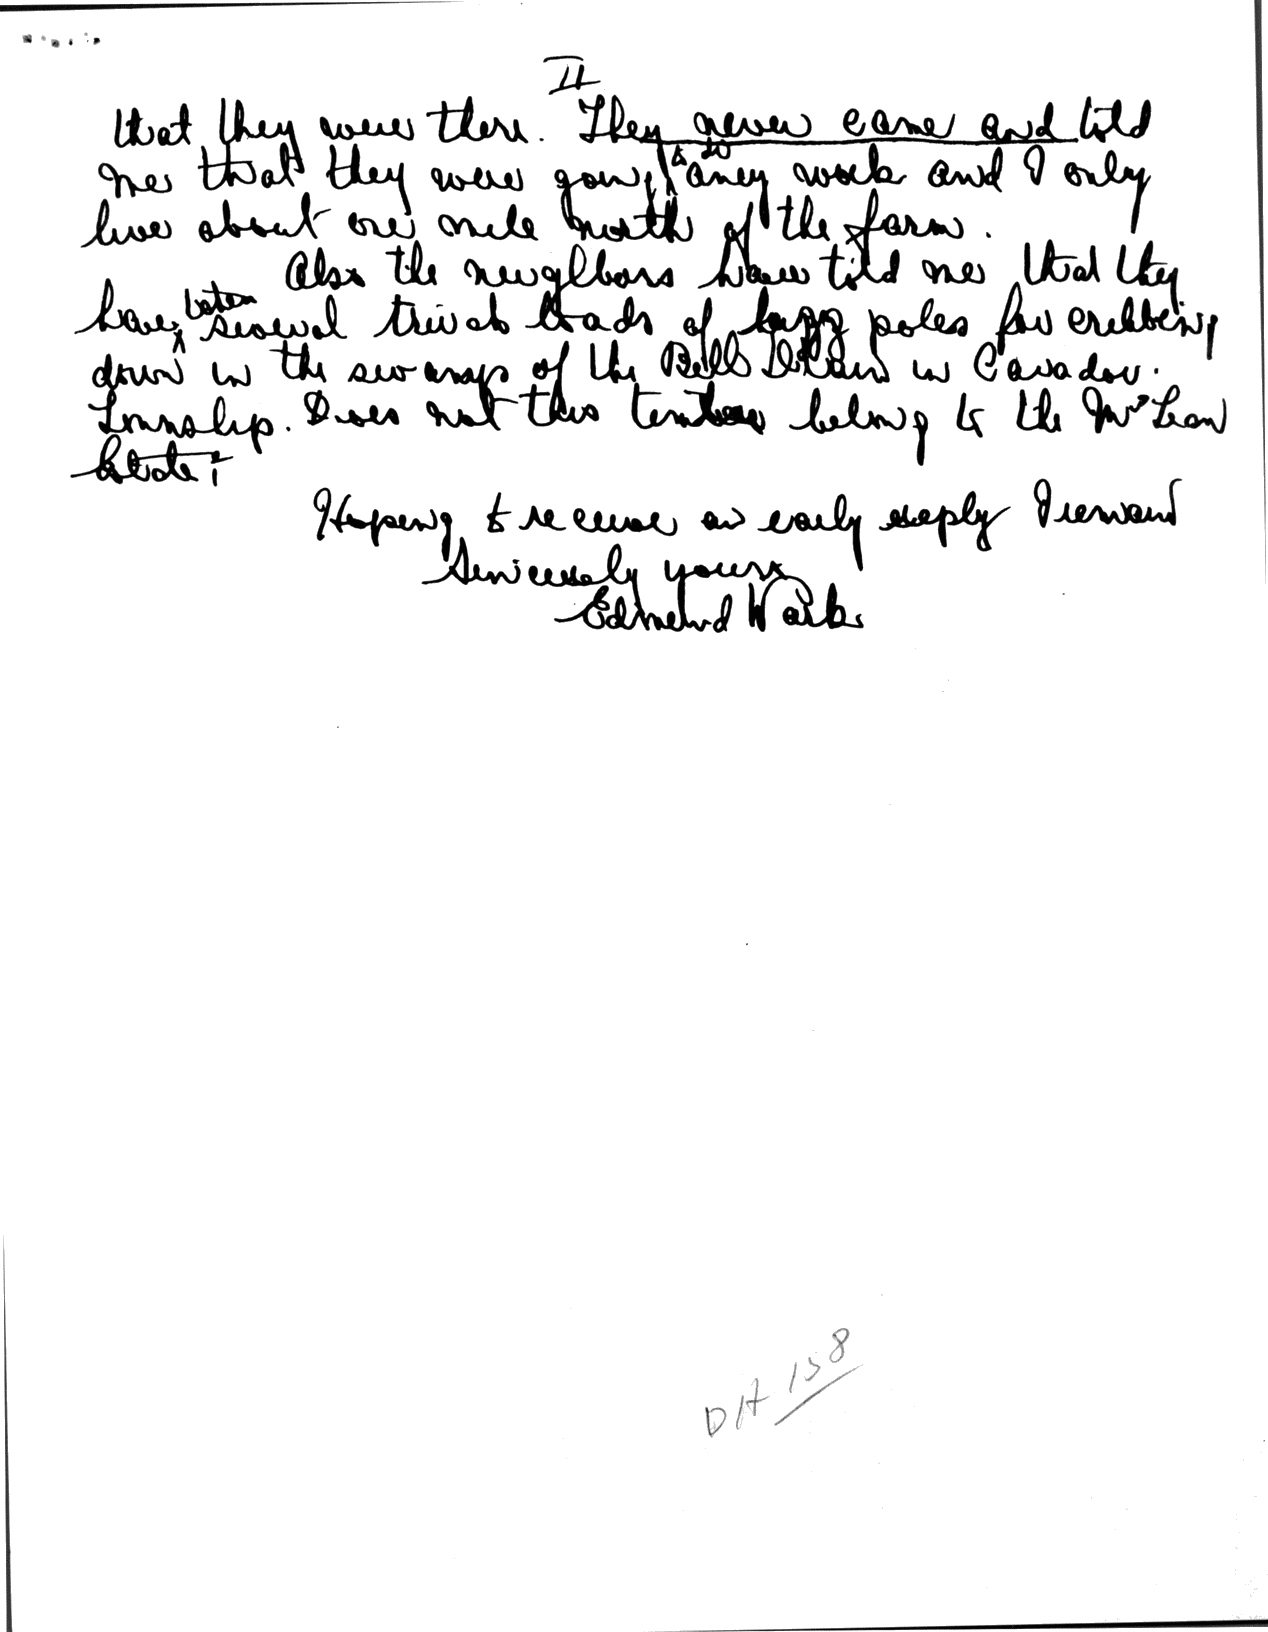 II
that they were there. They never came and told
me that they were going to do aney work and I only
live about one mile north of the farm.
Also the neighbors have told me that they
have taken several truck loads of bigg poles for cribbing
down in the swamps of the Bell Drain in Caradoc.
Township. Does not this timber belong to the McLean
Estate?
Hopeing to receive an early reply I remain
Sincerely yours
Edmund Wark
DH 158